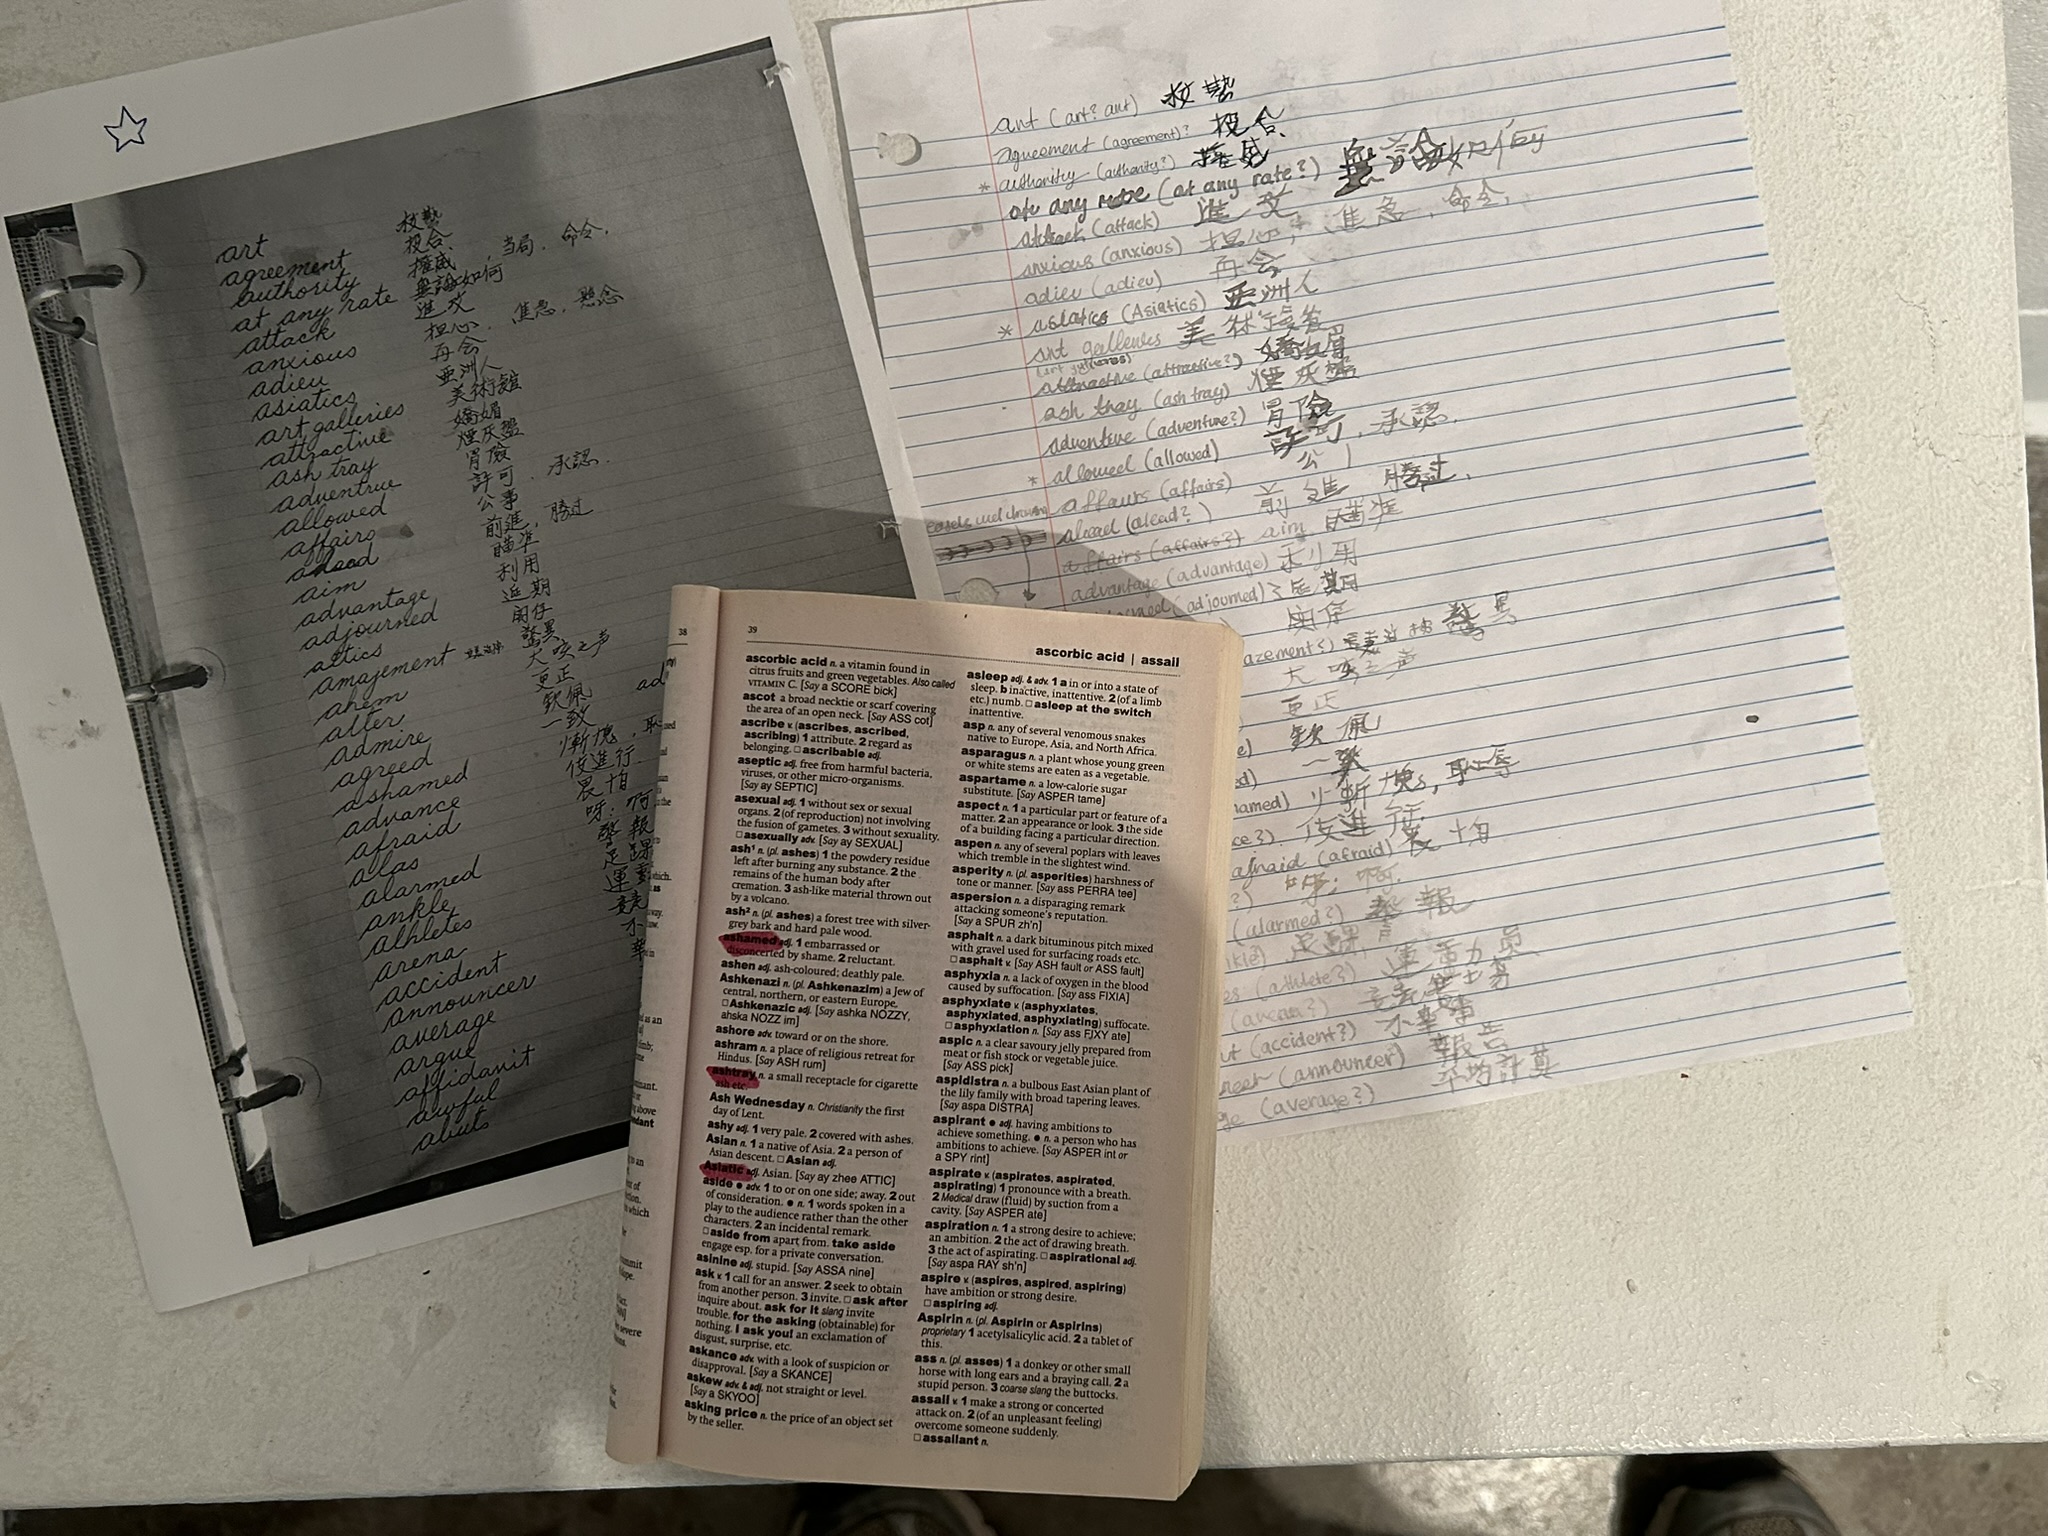 art 技藝
agreement 投合
authority 權威, 当局, 命令,
at any rate 無論如何
attack 進攻
anxious 担心, 焦急, 懸念
adieu 再会
asiatics 亜洲人
art galleries 美術館
attractive 嬌媚
ash tray 煙灰盤
adventrue 冒險
allowed 許可, 承認.
affairs 公事
ahead 前進, 勝过
aim 瞄准
advantage 利用
adjourned 延期
attics 閣仔
amajement 驚異
ahem 大咳之声
alter 更正
admire 欽佩
agreed 一致
ashamed 慚愧, 恥
advance 使進行
afraid 畏怕
alas 呀; 啊
alarmed 警報
ankle 足踝
athletes 運
arena 競
accident 不
announcer
average
argue
affidavit
awful
abuts
ant (art? ant) 技藝
agreement (agreement)? 投合
* authority (authority?) 權威
at any rate (at any rate?) 無論如何
attack (attack) 進攻
anxious (anxious) 担心, 焦急, 命令,
adieu (adieu) 再会
* asiatics (Asiatics) 亜洲人
art galleries 美
attractive (attractive?)
ash tray (ash tray) 煙灰盤
adventure (adventure?) 冒險
* allowed (allowed) 許可, 承認.
affairs (affairs) 公
alead (alead?) 前進 勝过,
affairs (affairs?) aim
advantage (advantage)
(adjourned)
azements) 驚異
大咳之声
更正
欽佩
一致
amed) 慚愧, 恥辱
ce?) 使進行
afraid (afraid)
呀; 啊.
(alarmed?) 警報
kle)
es (athlete?)
(arena?)
(accident?)
(announcer) 報告
(average?) 平均計算
38
39
ascorbic acid | assail
ascorbic acid n. a vitamin found in
citrus fruits and green vegetables. Also called
VITAMIN C. [Say a SCORE bick]
ascot a broad necktie or scarf covering
the area of an open neck. [Say ASS cot]
ascribe v. (ascribes, ascribed,
ascribing) 1 attribute. 2 regard as
belonging. □ ascribable adj.
aseptic adj. free from harmful bacteria,
viruses, or other micro-organisms.
[Say ay SEPTIC]
asexual adj. 1 without sex or sexual
organs. 2 (of reproduction) not involving
the fusion of gametes. 3 without sexuality.
□ asexually adv. [Say ay SEXUAL]
ash¹ n. (pl. ashes) 1 the powdery residue
left after burning any substance. 2 the
remains of the human body after
cremation. 3 ash-like material thrown out
by a volcano.
ash² n. (pl. ashes) a forest tree with silver-
grey bark and hard pale wood.
ashamed adj. 1 embarrassed or
disconcerted by shame. 2 reluctant.
ashen adj. ash-coloured; deathly pale.
Ashkenazi n. (pl. Ashkenazim) a Jew of
central, northern, or eastern Europe.
□ Ashkenazic adj. [Say ashka NOZZY,
ahska NOZZ im]
ashore adv. toward or on the shore.
ashram n. a place of religious retreat for
Hindus. [Say ASH rum]
ashtray n. a small receptacle for cigarette
ash etc.
Ash Wednesday n. Christianity the first
day of Lent.
ashy adj. 1 very pale. 2 covered with ashes.
Asian n. 1 a native of Asia. 2 a person of
Asian descent. □ Asian adj.
Asiatic adj. Asian. [Say ay zhee ATTIC]
aside ● adv. 1 to or on one side; away. 2 out
of consideration. ● n. 1 words spoken in a
play to the audience rather than the other
characters. 2 an incidental remark.
□ aside from apart from. take aside
engage esp. for a private conversation.
asinine adj. stupid. [Say ASSA nine]
ask v. 1 call for an answer. 2 seek to obtain
from another person. 3 invite. □ ask after
inquire about. ask for it slang invite
trouble. for the asking (obtainable) for
nothing. I ask you! an exclamation of
disgust, surprise, etc.
askance adv. with a look of suspicion or
disapproval. [Say a SKANCE]
askew adv. & adj. not straight or level.
[Say a SKYOO]
asking price n. the price of an object set
by the seller.
asleep adj. & adv. 1 a in or into a state of
sleep. b inactive, inattentive. 2 (of a limb
etc.) numb. □ asleep at the switch
inattentive.
asp n. any of several venomous snakes
native to Europe, Asia, and North Africa.
asparagus n. a plant whose young green
or white stems are eaten as a vegetable.
aspartame n. a low-calorie sugar
substitute. [Say ASPER tame]
aspect n. 1 a particular part or feature of a
matter. 2 an appearance or look. 3 the side
of a building facing a particular direction.
aspen n. any of several poplars with leaves
which tremble in the slightest wind.
asperity n. (pl. asperities) harshness of
tone or manner. [Say ass PERRA tee]
aspersion n. a disparaging remark
attacking someone's reputation.
[Say a SPUR zh'n]
asphalt n. a dark bituminous pitch mixed
with gravel used for surfacing roads etc.
□ asphalt v. [Say ASH fault or ASS fault]
asphyxia n. a lack of oxygen in the blood
caused by suffocation. [Say ass FIXIA]
asphyxiate v. (asphyxiates,
asphyxiated, asphyxiating) suffocate.
□ asphyxiation n. [Say ass FIXY ate]
aspic n. a clear savoury jelly prepared from
meat or fish stock or vegetable juice.
[Say ASS pick]
aspidistra n. a bulbous East Asian plant of
the lily family with broad tapering leaves.
[Say aspa DISTRA]
aspirant ● adj. having ambitions to
achieve something. ● n. a person who has
ambitions to achieve. [Say ASPER int or
a SPY rint]
aspirate v. (aspirates, aspirated,
aspirating) 1 pronounce with a breath.
2 Medical draw (fluid) by suction from a
cavity. [Say ASPER ate]
aspiration n. 1 a strong desire to achieve;
an ambition. 2 the act of drawing breath.
3 the act of aspirating. □ aspirational adj.
[Say aspa RAY sh'n]
aspire v. (aspires, aspired, aspiring)
have ambition or strong desire.
□ aspiring adj.
Aspirin n. (pl. Aspirin or Aspirins)
proprietary 1 acetylsalicylic acid. 2 a tablet of
this.
ass n. (pl. asses) 1 a donkey or other small
horse with long ears and a braying call. 2 a
stupid person. 3 coarse slang the buttocks.
assail v. 1 make a strong or concerted
attack on. 2 (of an unpleasant feeling)
overcome someone suddenly.
□ assailant n.